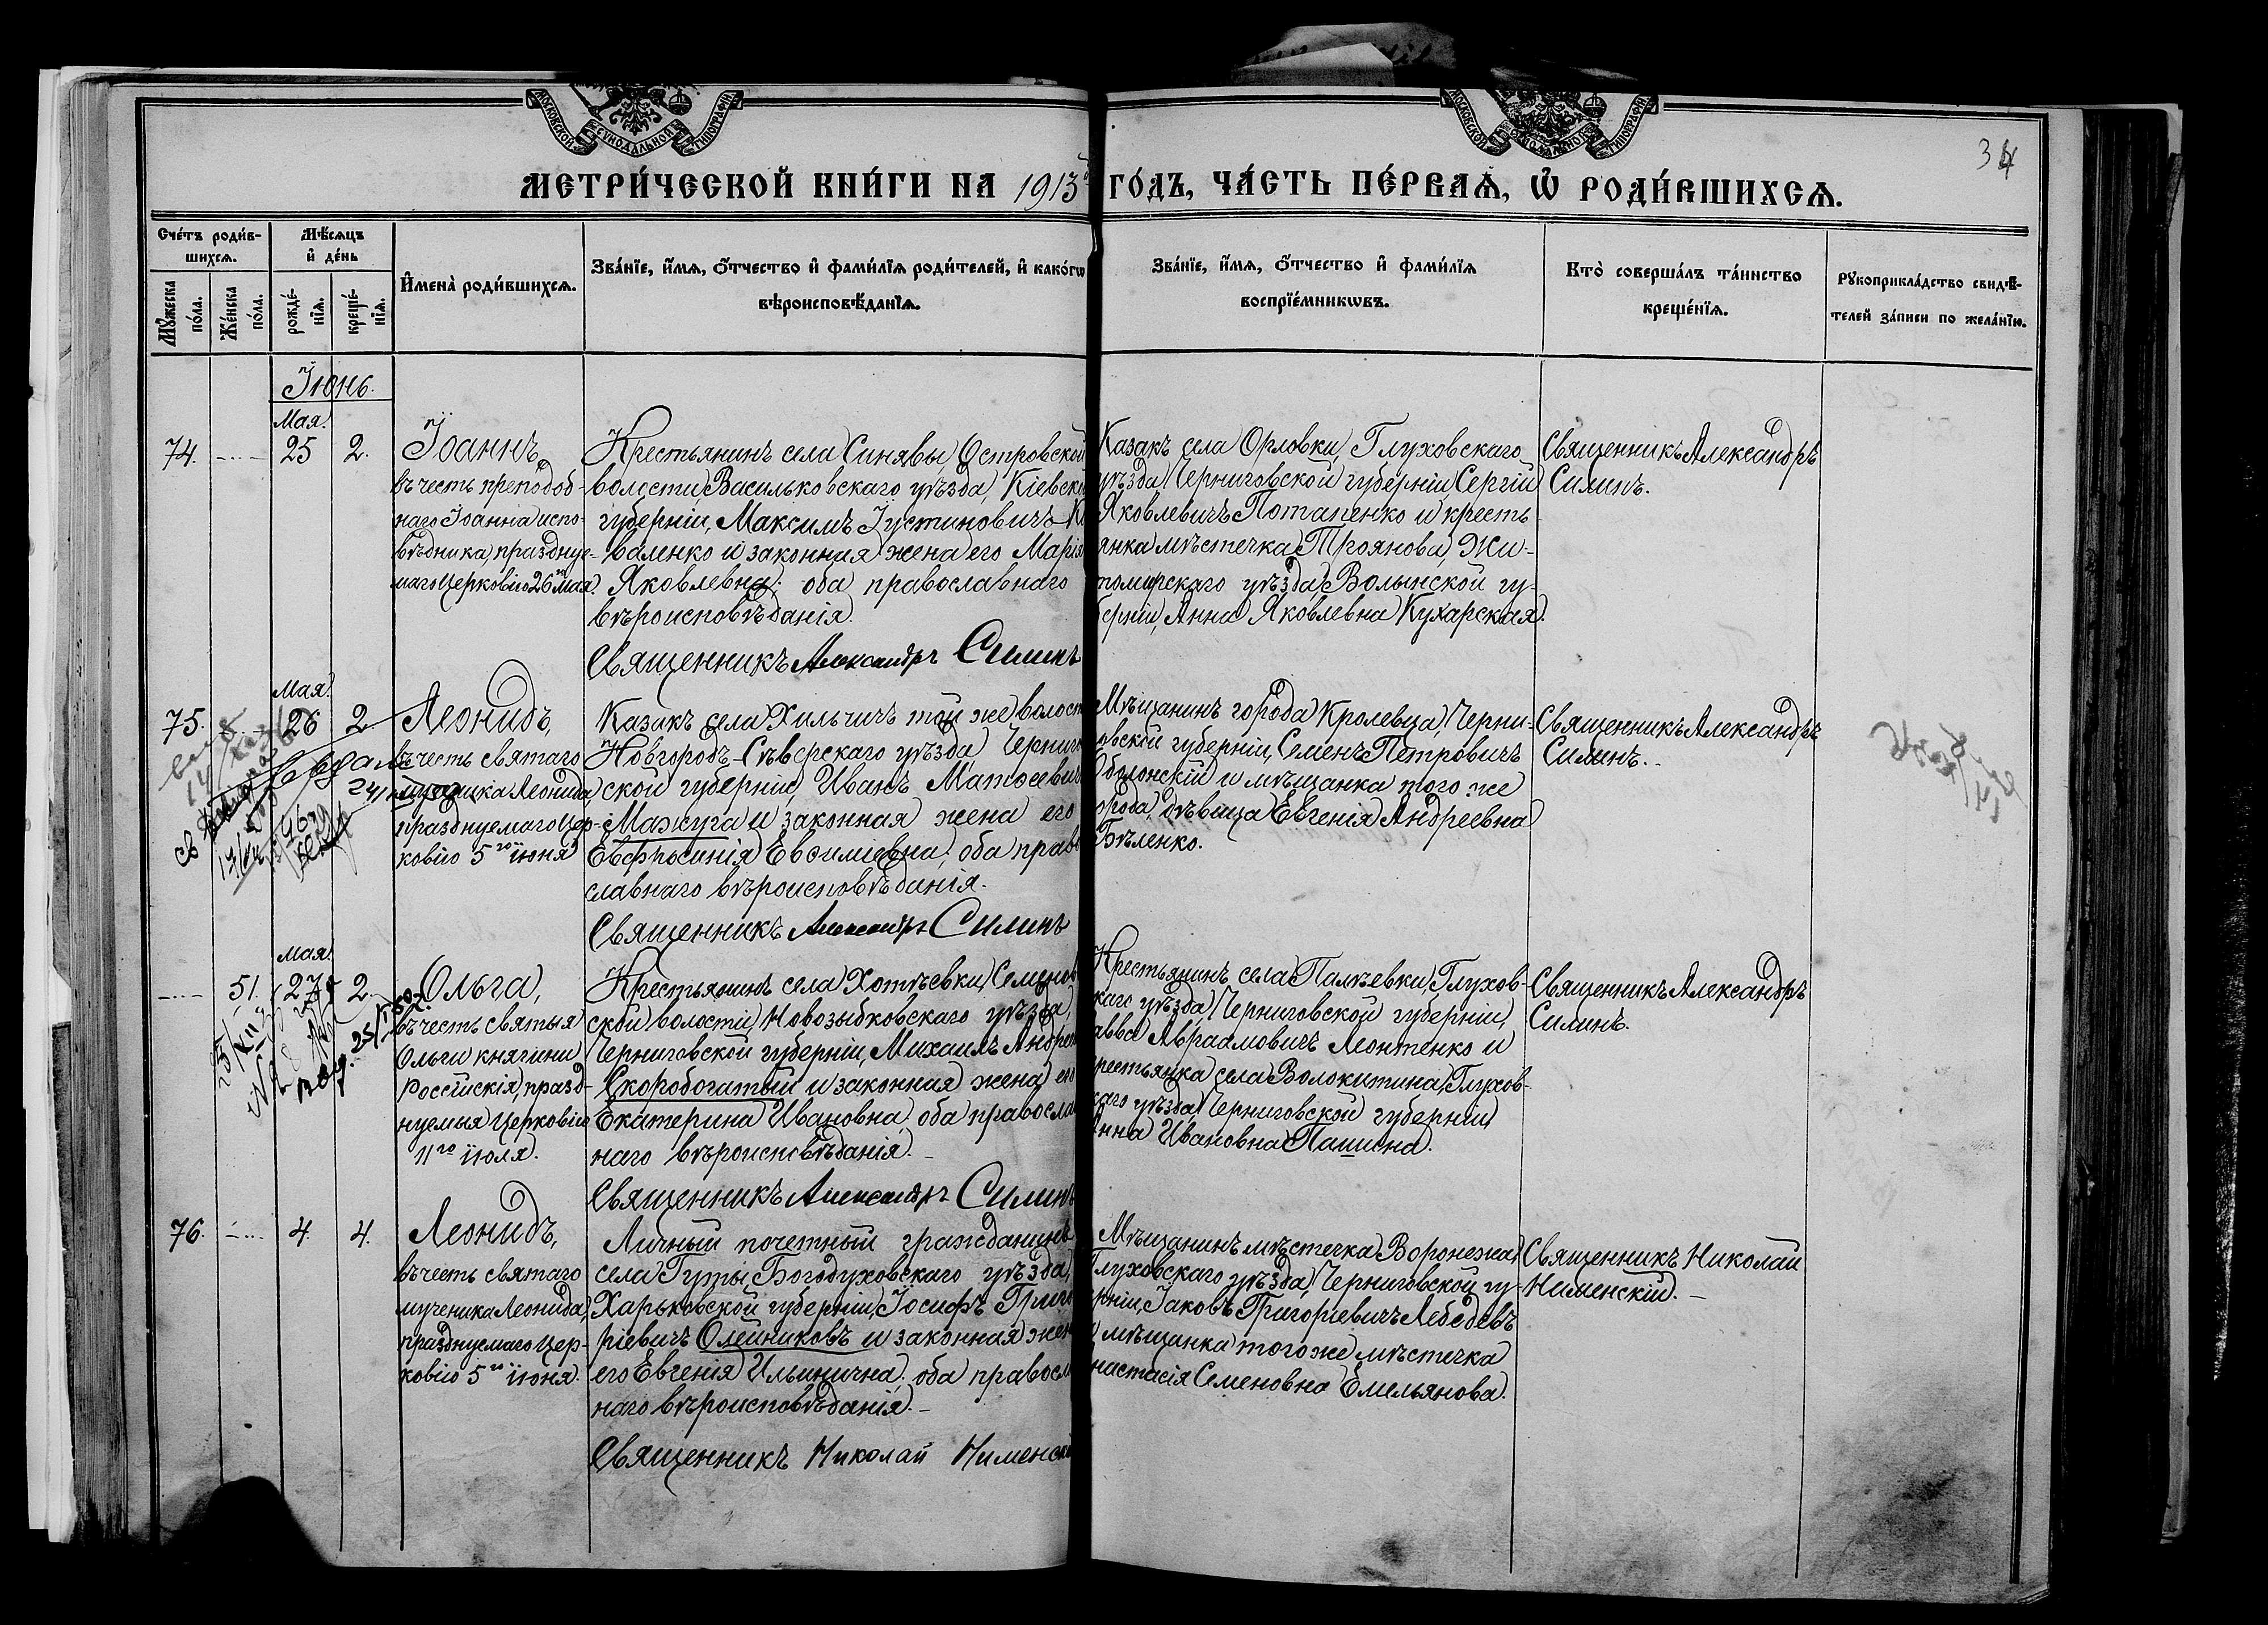 МОСКОВСКОЙ СУНОДАЛЬНОЙ ТИПОГРАФІИ
МОСКОВСКОЙ СУНОДАЛЬНОЙ ТИПОГРАФІИ
34
МЕТРИ́ЧЕСКОЙ КНИ́ГИ НА 1913 ГО́ДЪ, ЧА́СТЬ ПЕ́РВАѦ, Ѡ҆ РОДИ́ВШИХСѦ.
Счéтъ роди́в-
шихсѧ.
Мѣ́сѧцъ
и҆ де́нь
Мꙋ́жеска
по́ла.
Же́нска
по́ла.
рожде́-
нїѧ.
креще́-
нїѧ.
И҆мена̀ роди́вшихсѧ.
Зва́нїе, и҆́мѧ, ѻ҆́тчество и҆ фами́лїѧ роди́телей, и҆ како́гѡ
вѣроисповѣ́данїѧ.
Зва́нїе, и҆́мѧ, ѻ҆́тчество и҆ фами́лїѧ
воспрїе́мникѡвъ.
Кто̀ соверша́лъ та́инство
креще́нїѧ.
Рꙋкоприкла́дство свидѣ́-
телей за́писи по жела́нїю.
Іюнь.
Мая.
74. 25 2.
Іоаннъ,
въ честь преподоб-
наго Іоанна испо-
вѣдника, праздруе-
маго Церковію 26 мая.
Крестьянинъ села Синявы, Островской
волости, Васильковскаго уѣзда, Кіевск
губерніи, Максимъ Іустиновичъ К
валенко и законная жена его Марія
Яковлевна; оба православнаго
вѣроисповѣданія.
Священникъ Александръ Силинъ
Казакъ села Орловки, Глуховскаго
уѣзда, Черниговской губерніи, Сергій
Яковлевичъ Потапенко и кресть-
янка мѣстечка Троянова, Жи-
томирскаго уѣзда, Волынской гу-
берніи, Анна Яковлевна Кухарская.
Священникъ Александръ
Силинъ.
Мая.
75. 26 2.
Леонидъ,
въ честь святаго
мученика Леонида,
празднуемаго Цер-
ковію 5го іюня
Казакъ села Хильчичъ той же волост
Новгородъ-Сѣверскаго уѣзда, Черниго
ской губерніи, Иванъ Матѳевич
Мажуга и законная жена его
Евфросинія Евсиліевна; оба право
славнаго вѣроисповѣданія.
Священникъ Александръ Силинъ
Мѣщанинъ города Кролевца, Черни-
овской губерніи, Семенъ Петровичъ
Оболонскій и мѣщанка того же
орода, дѣвица Евгенія Андреевна
Бѣленко.
Священникъ Александръ
Силинъ.
Мая.
51. 27 2.
Ольга,
въ честь святыя
Ольги княгини
Россійскія, празд-
нуемыя Церковію
11го іюля.
Крестьянинъ села Хотѣевки, Семенов
ской волости, Новозыбковскаго уѣзда,
Черниговской губерніи, Михаилъ Андрее
Скоробогатый и законная жена его
Екатерина Ивановна; оба православ
наго вѣроисповѣданія.
Священникъ Александръ Силинъ
Крестьянинъ села Палѣевки, Глухов-
каго уѣзда, Черниговской губерніи,
авва Авраамовичъ Леонтенко и
рестьянка села Волокитина, Глухов-
каго уѣзда, Черниговской губерніи,
Анна Ивановна Пашина.
Священникъ Александръ
Силинъ.
76. 4. 4.
Леонидъ,
въ честь святаго
мученика Леонида,
празднуемаго Цер-
ковію 5го іюня.
Личный почетный гражданинъ
села Гуты, Богодуховскаго уѣзда,
Харьковской губерніи, Іосифъ Григо
ріевичъ Олейниковъ и законная жен
его Евгенія Ильинична; оба правосла
наго вѣроисповѣданія.
Священникъ Николай Нименскі
Мѣщанинъ мѣстечка Воронежа,
Глуховскаго уѣзда, Черниговской гу-
рніи, Іаковъ Григоріевичъ Лебедевъ
и мѣщанка того же мѣстечка
настасія Семеновна Емельянова.
Священникъ Николай
Нименскій.